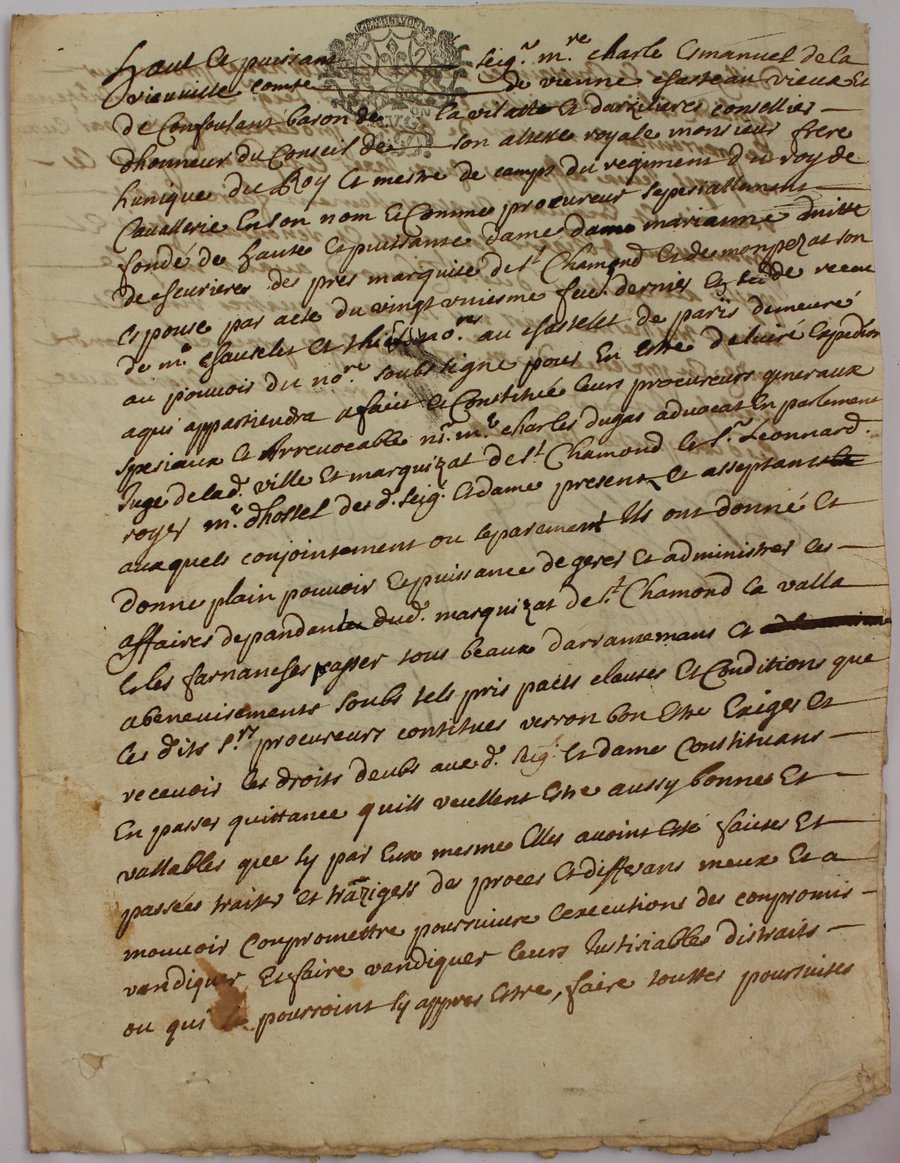 Haut Et puissant seigr. mre. charle Emanuel de la
vieuville comte de vienne chasteau vieux Et
de Confoulant baron de la vilatte Et darzilieres conseillier
dhonneur du Conseil de son altesse royale monsieur frere
hunique du Roy Et mestre de camps du regiment du roy de
Cavallerie En son nom Et Comme procureur sepeciallement
fondé de haute Et puissante dame dame marianne mitte
de cheurieres des pres marquise de st. Chamond Et de monpezat son
Espouse par acte du vingt uniesme feu. dernier Et receu
de mr. chauvelet Et nore. au chastelet de paris demeuré
au pouvoir du nore. soubsigne pour En estre deluré Expedition
aqui appartiendra a faict Et Constitué leurs procureurs generaux
speciaux Et Irrevocable mr. charles dugas advocat En parlement
Juge de lad. ville Et marquizat de st. Chamond Et sr. Leonnard
royer mr. dhostel des d. seigr. Et dame present Et asseptant
auxquels conjointement ou separement Ils ont donné Et
donne plain pouvoir Et puissance de gerer Et administrer les
affaires depandantes dud. marquizat de st. Chamond la valla
Et les farnanches passer tous beaux darrantemans Et
abeneuisements soubs tels pris pacts clauses Et Conditions que
les dits srs. procureurs contitues verron bon Estre Exiger Et
recevoir les droits deubs aux d. seigr. Et dame Constituans
En passer quittance quils veullent Estre aussy bonnes Et
vallables que sy par Eux mesme Elles avoint Esté faites Et
passées traiter Et tranziger des proces Et differans meux Et a
mouvoir Compromettre poursuivre lexecutions des compromis
vandiquer Et faire vandiquer leurs Justiciables distraits
ou qui pourroint sy appres Estre, faire touttes poursuites